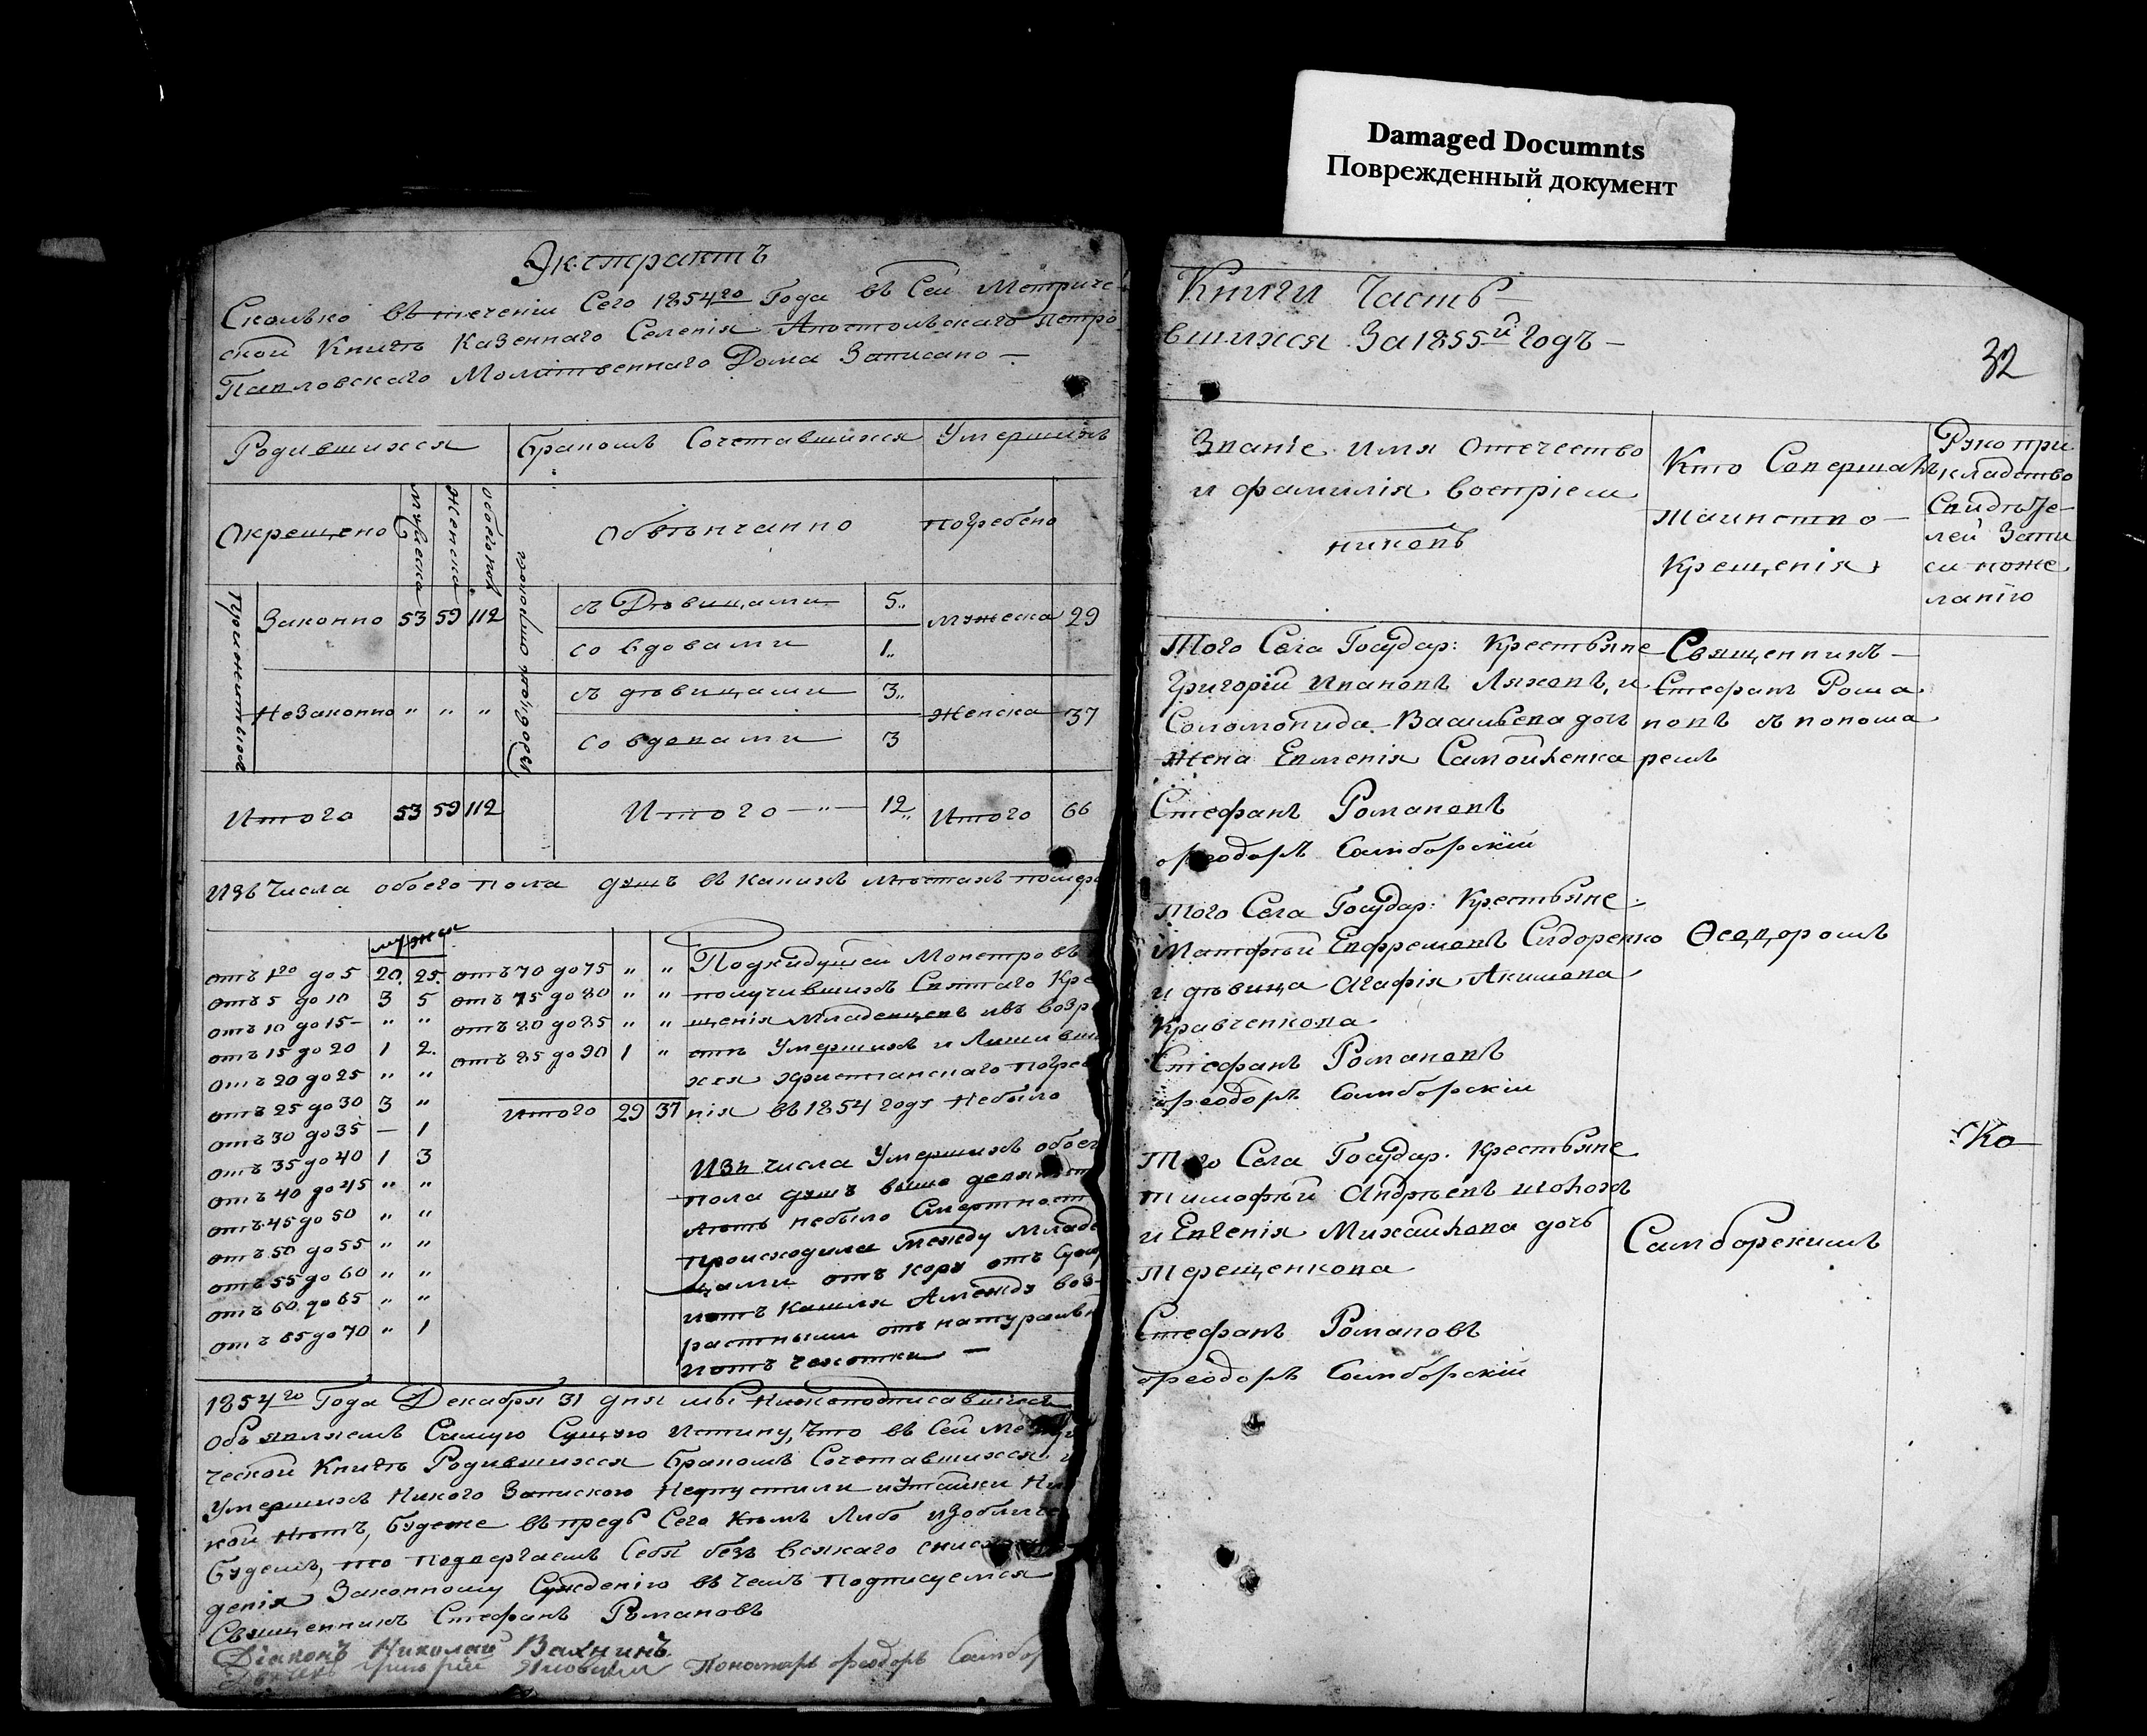 Damaged Documnts
Поврежденный документ
Экстрактъ
Сколько въ теченіи Сего 1854го Года въ Сей Метриче-
ской Книгѣ Казеннаго Селенія Апостольскаго Петро
Павловскаго Молитвеннаго Дома Записано —
Родившихся
Бракомъ Сочетавшихся
Умершихъ
Окрещено
Мужеска
Женска
Обоѣхъ
Обвѣнчанно
Погребено
Законно 53 59 112
съ Дѣвицами 5
со вдовами 1
мужеска 29
Незаконно " " "
съ дѣвицами 3
со вдовами 3
Женска 37
Итого 53 59 112
Итого — " — 12
Итого 66
Изъ Числа обоего пола душъ въ какихъ Лѣтахъ помер
отъ 1го до 5 20 25
отъ 5 до 10 3 5
отъ 10 до 15 - " "
отъ 15 до 20 1 2
отъ 20 до 25 " "
отъ 25 до 30 3 "
отъ 30 до 35 — 1
отъ 35 до 40 1 3
отъ 40 до 45 " "
отъ 45 до 50 " "
отъ 50 до 55 " "
отъ 55 до 60 " "
отъ 60 до 65 " "
отъ 65 до 70 " 1
отъ 70 до 75 " "
отъ 75 до 80 " "
отъ 80 до 85 " "
отъ 85 до 90 1 "
Итого 29 37
Подкидушей Монстровъ
получившихъ Святаго Кре
щенія Младенцевъ изъ возр
Умершихъ и Лишивши
хся христіанскаго погреб
нія въ 1854 году Небыло
Изъ числа Умершихъ обоег
пола душъ выше девяност
Лѣтъ небыло Смертност
происходила между Младе
цами отъ кору отъ
и отъ Кашля А между воз-
растными отъ натуральн
и отъ Чахотки —
1854го Года Декабря 31 дня мы Нижеподписавшіеся
Объявляемъ Самую Сущую Истину, Что въ Сей Метри
ческой Книгѣ Родившихся Бракомъ Сочетавшихся и
Умершихъ Никого Запискою Непустили и Утайки Ни
кой Нѣтъ, Будеже въпредь Сего Кѣмъ Либо изобличе
Будемъ, то Подвергаемъ Себя безъ всякаго снисх
денія Законному Сужденію въ Чемъ Подписуемся
Священникъ Стефанъ Романовъ
Діаконъ Николай Вахнинъ
Григорій Пономарь Ѳеодоръ Самбор
Книги Часть
вшихся За 1855й Годъ —
32
Званіе имя Отечество
и фамилія воспріем
никовъ
Кто Совершалъ
Таинство —
Крещенія
Рукопри
кладство
Свидѣте-
лей Запи
си поже
ланію
Того Села Государ: Крестьяне
Григорій Ивановъ Ляховъ, и
Соломонида Васильева дочь
жена Евменія Самойленка
Стефанъ Романовъ
Ѳеодоръ Самборскій
Священникъ —
Стефанъ Рома
новъ съ понома
ремъ
Того Села Государ: Крестьяне
Матфѣй Евфремовъ Сидоренко
и дѣвица Агафія Акимова
Кравченкова
Стефанъ Романовъ
Ѳеодоръ Самборскій
Ѳеодоромъ
Того Села Государ: Крестьяне
Тимофѣй Андрѣевъ
и Евгенія Михайлова дочь
Терещенкова
Стефанъ Романовъ
Ѳеодоръ Самборскій
Самборскимъ
Ко